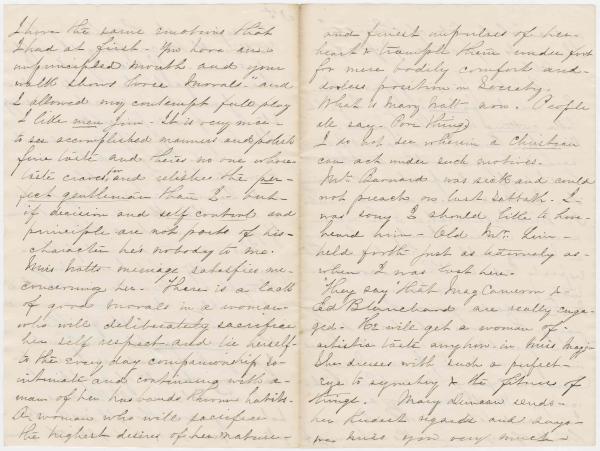 I have the same emotions that
I had at first - You have an
unprincipled mouth and your
walk shows loose "morals." and
I allowed my contempt full play
I like men Jim - It is very nice -
to see accomplished manners and polish
fine taste and there's no one whose
taste craves for and relishes the per-
fect gentleman than I - but -
if decision and self control and
principle are not parts of his -
character he's nobody to me.
Miss Watts message satisfies me -
concerning her. There is a lack
of good morals in a woman -
who will deliberately sacrifice
her self respect and tie herself -
to the every day companionship so -
intimate and continuing with a -
man of her husbands known habits -
A woman who will sacrifice
the highest desires of her nature -
and finest impulses of her -
heart & trample them under foot
for mere bodily comfort and -
position in Society.
What is Mary Watt now. People
all say - Poor thing)
I do not see wherein a Christian
can act under such motives.
Mr. Barnard was sick and could
not preach on last Sabbath. I -
was sorry I should like to have -
heard him - Old Mr.
held forth just as eternally as -
when I was last here.
"They say" that Mag Cameron &
Ed Blanchard are really enga-
ged - He will get a woman of -
artistic taste anyhow in Miss Mag -
She dresses with such a perfect -
eye to symetry & the fitness of
things. Mary Duncan sends -
her kindest regards and says -
we miss you very much -